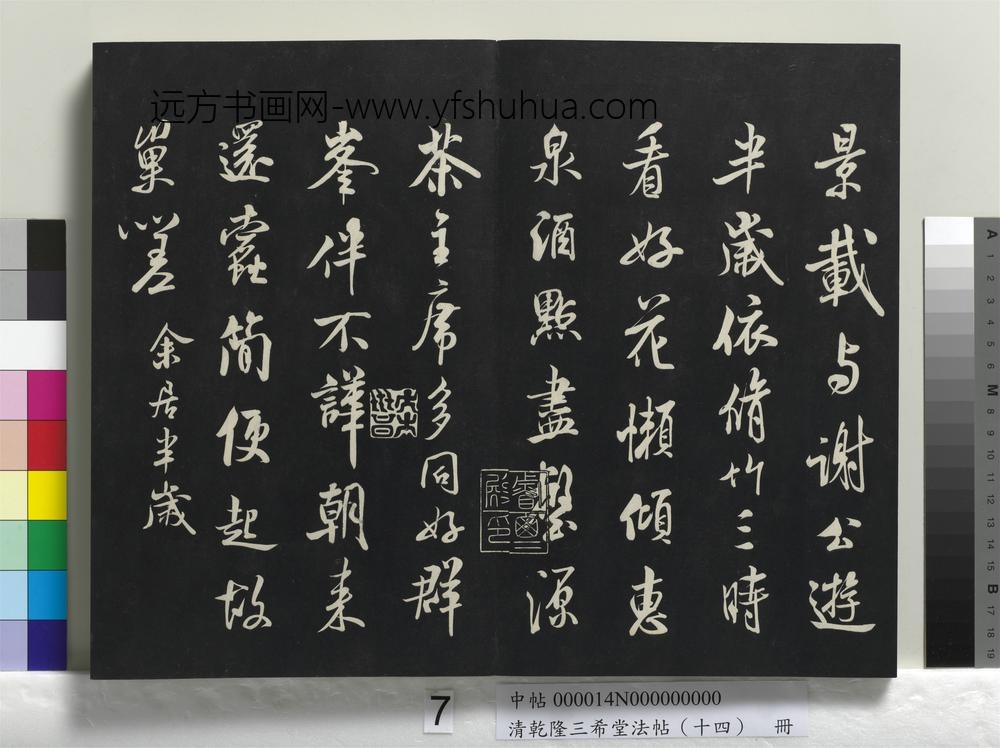 远方书画网-www.yfshuhua.com
景載与謝公遊
半歲依脩竹三時
看好花懶傾惠
泉酒點盡壑源
茶主席多同好群
峯伴不譁朝来
還蠹簡便起故
巢嗟 余居半歲
7
中帖 000014N000000000
清乾隆三希堂法帖（十四） 冊
A
1
2
3
4
5
6
M
8
9
10
11
12
13
14
15
B
17
18
19